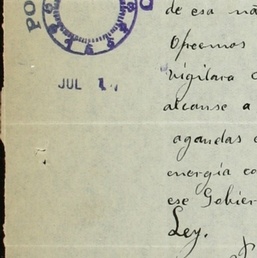 PO
JUL 1
de esa
Creemos
vigilara
alcanse a
agandas
energía co
ese Gobier
Ley.